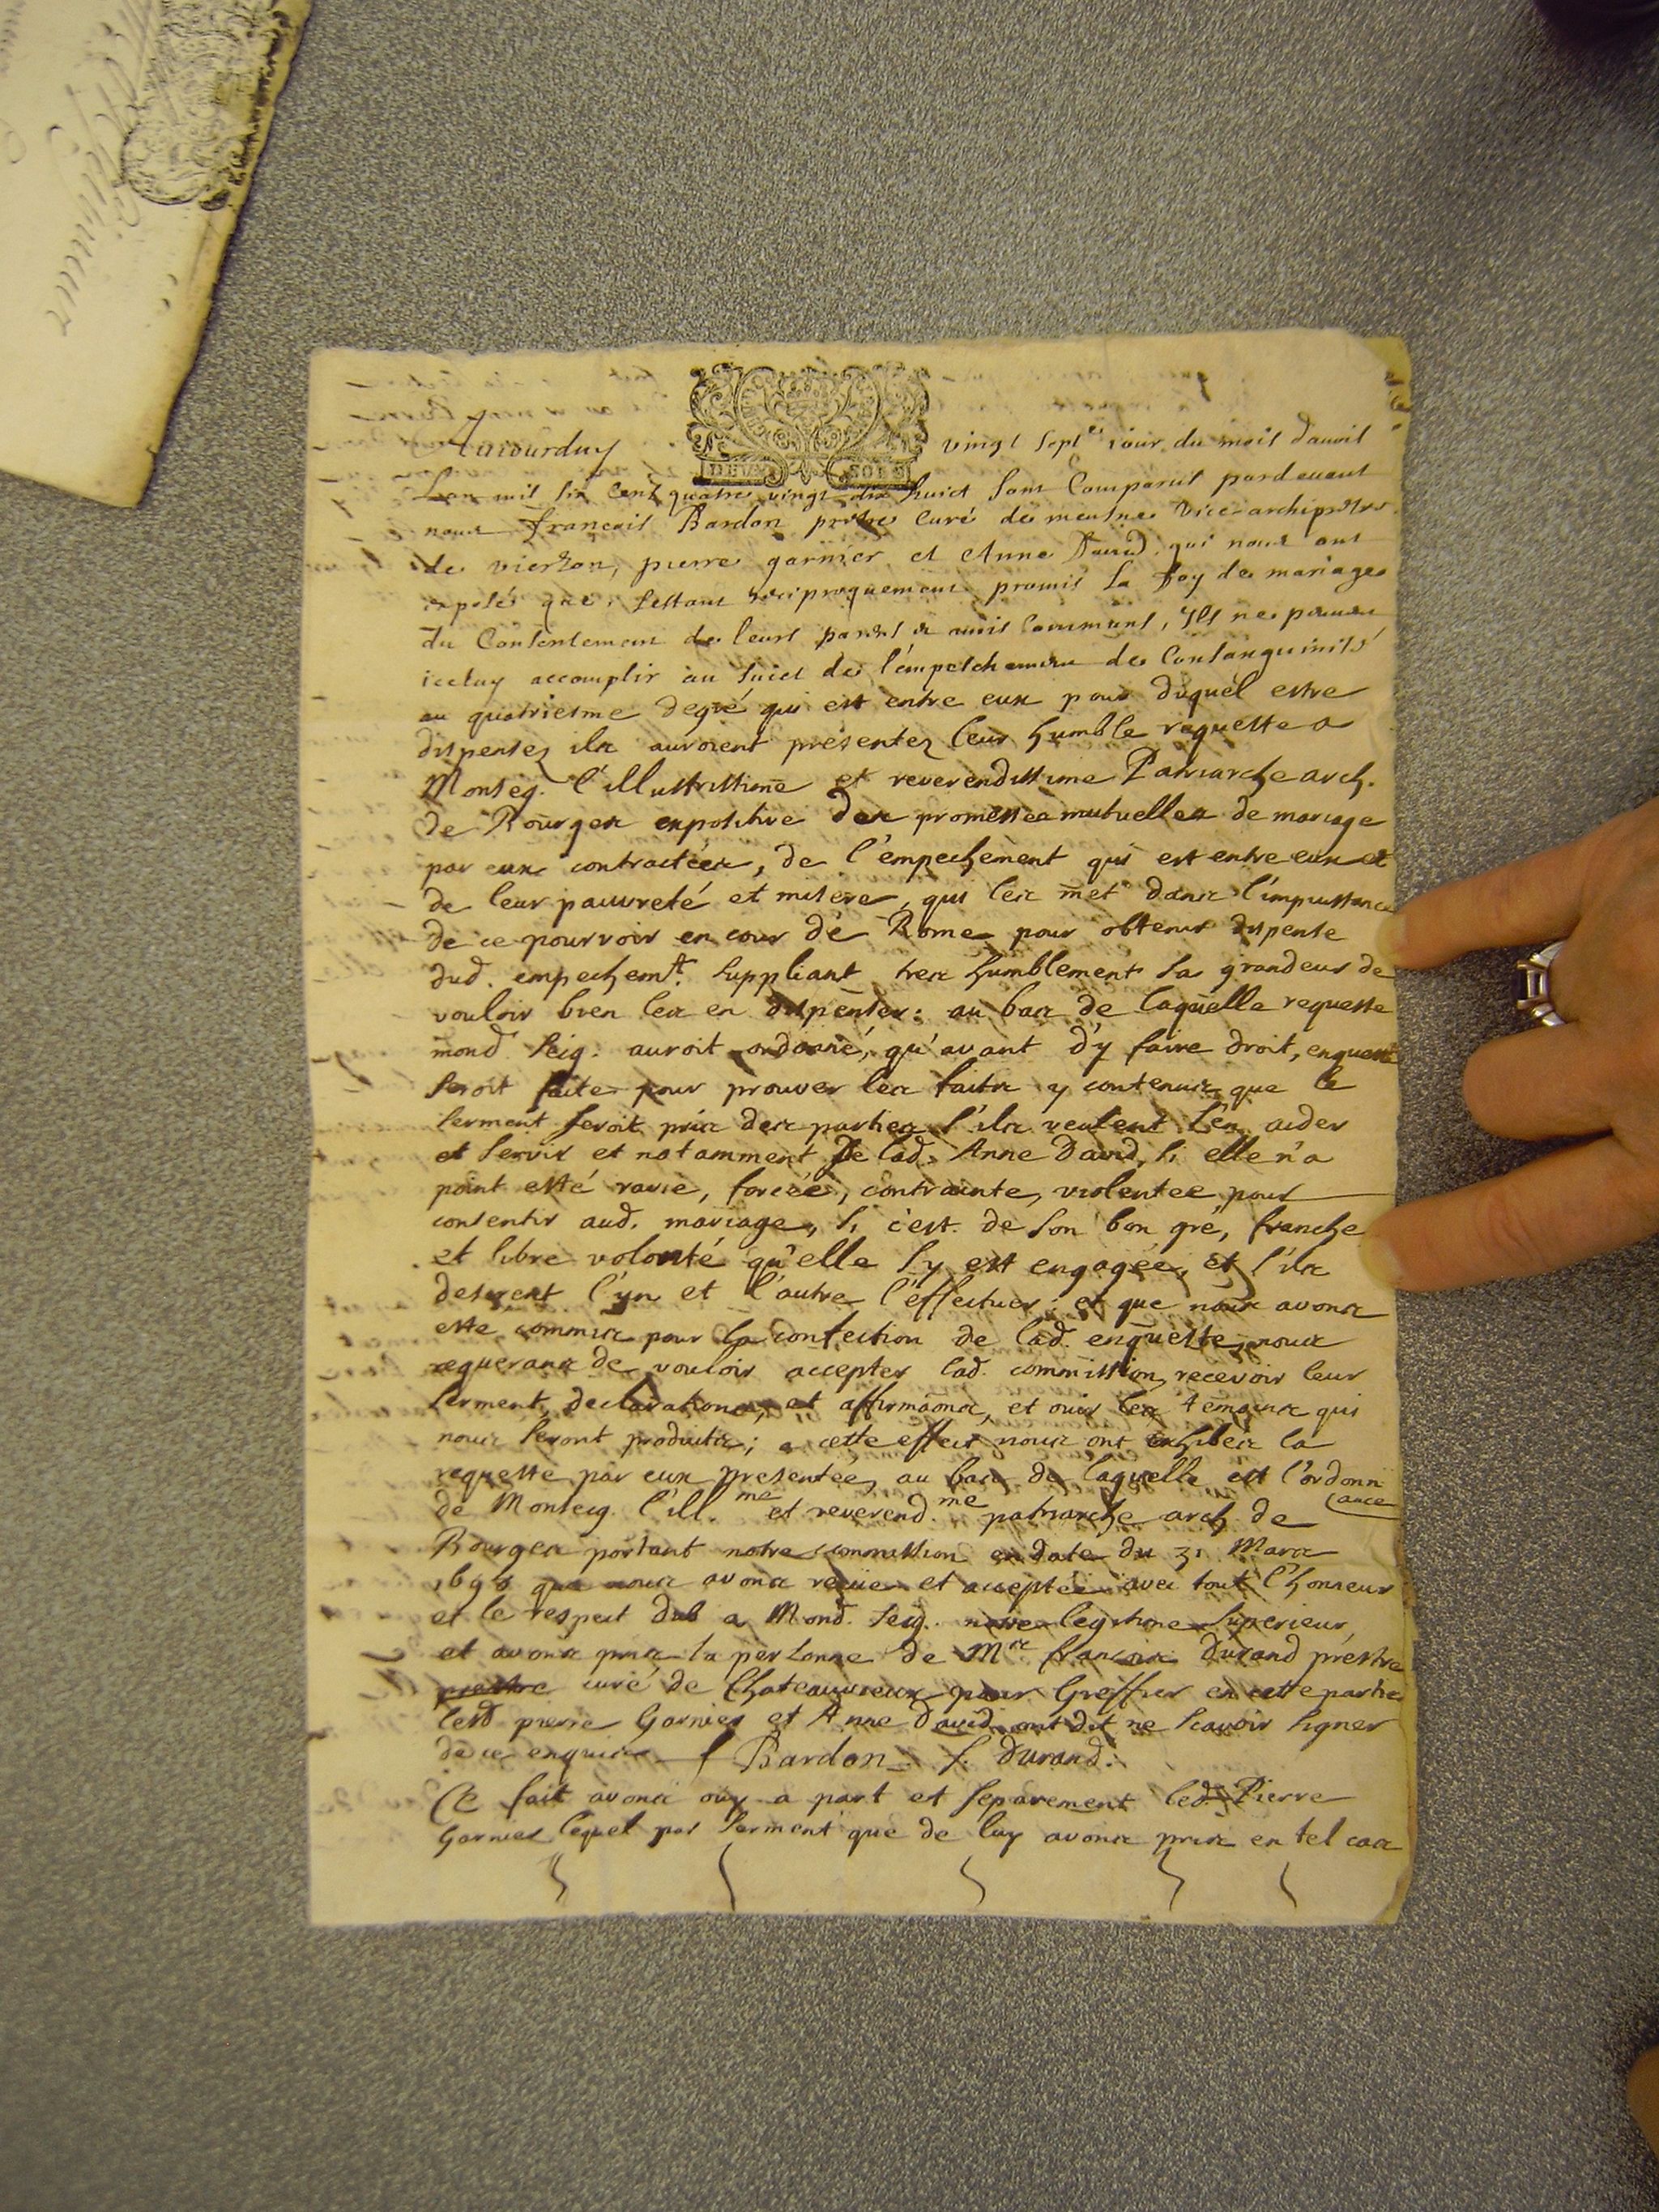 Aujourduy vingt sept.e iour du mois dauril
Lan mil six cent quatre vingt dix huict sont Comparus pardeuant
nous françois Bardon prestre curé de meusnes vice-archiprestre
de vierzon, pierre garnier et Anne Dauid qui nous ont
exposé que sestant reciproquement promis la foy de mariage
du Consentement de leurs parens et amis communs, Ils ne peuuent
iceluy accomplir au suiet de l'empeschement de Consanguinité
au quatriesme degré qui est entre eux pour duquel estre
dispensez ils auroient présentez leur humble requeste a
Monseig. l'illustrissime et reverendissime Patriarche arch.
de Bourges expositive des promesses mutuelles de mariage
par eux contractées, de l'empechement qui est entre eux et
de leur pauvreté et misere, qui les met dans l'impuissance
de ce pourvoir en cour de Rome pour obtenir dispense
dud. empechemt. suppliant tres humblement sa grandeur de
vouloir bien les en dispenser: au bas de laquelle requeste
mond. seig. auroit ordonné, qu'avant d'y faire droit, enqueste
seroit faite pour prouver les faits y contenus que le
serment seroit pris des parties s'ils veulent s'en aider
et servir et notamment de lad. Anne David, si elle n'a
point esté ravie, forcée, contrainte, violentee pour
consentir aud. mariage, si c'est de son bon gré, franche
et libre volonté qu'elle s'y est engagée, et s'ils
desirent l'un et l'autre l'effectuer: et que nous avons
esté commis pour la confection de lad. enqueste, nous
requerans de vouloir accepter lad. commission, recevoir leur
serment, declarations, et affirmaons, et ouir les temoins qui
nous seront produits; a cette effect nous ont exhibés la
requeste par eux presentée, au bas de laquelle est l'ordonn
ance
de Monseig. l'ill.me et reverend.me patriarche arch. de
Bourges portant notre commission en date du 31 Mars
1698 que nous avons reçue et acceptée avec tout l'honneur
et le respect dub a Mond. seig. notre legitime superieur,
et avons pris la personne de Mre françois Durand prestre
prestre curé de Chateauvieux pour Greffier en cette partie
lesd pierre Garnier et Anne David ont dit ne scavoir signer
de ce enquis f Bardon f. Durand.
Ce fait avons ouy a part et separement led. Pierre
Garnier lequel par serment que de luy avons pris en tel cas
DEUX SOLS